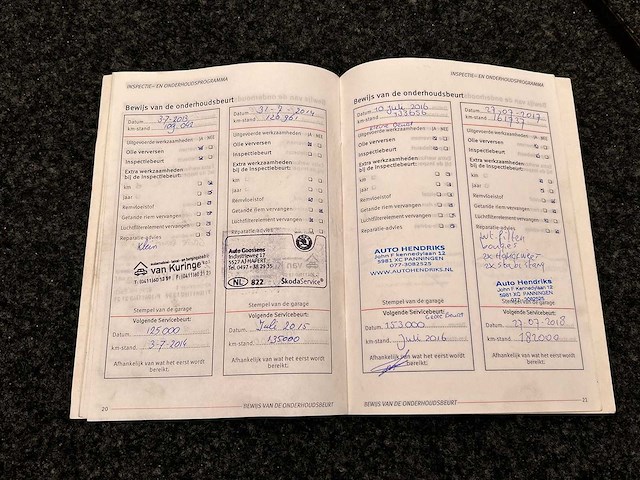 INSPECTIE- EN ONDERHOUDSPROGRAMMA
Bewijs van de onderhoudsbeurt
Datum 3-7-2013
km-stand 109.092
Uitgevoerde werkzaamheden JA NEE
Olie verversen
Inspectiebeurt
Extra werkzaamheden
bij de Inspectiebeurt:
km
Jaar
Remvloeistof
Getande riem vervangen
Luchtfilterelement vervangen
Reparatie-advies
Klein
van Kuringe
Stempel van de garage
Volgende Servicebeurt:
Datum 125000
km-stand 3-7-2014
Afhankelijk van wat het eerst wordt
bereikt:
Datum 31-7-2014
km-stand 126.361
Uitgevoerde werkzaamheden JA NEE
Olie verversen
Inspectiebeurt
Extra werkzaamheden
bij de Inspectiebeurt:
km
Jaar
Remvloeistof
Getande riem vervangen
Luchtfilterelement vervangen
Reparatie-advies
Auto Goossens
Industrieweg 17
5527AJ HAPERT
Tel. 0497 - 38 29 35
NL 822 SkodaService
Stempel van de garage
Volgende Servicebeurt:
Datum Juli 2015
km-stand 135000
Afhankelijk van wat het eerst wordt
bereikt:
20
BEWIJS VAN DE ONDERHOUDSBEURT
INSPECTIE- EN ONDERHOUDSPROGRAMMA
Bewijs van de onderhoudsbeurt
Datum 10 Juli 2016
km-stand 133656
kleine beurt
Uitgevoerde werkzaamheden JA NEE
Olie verversen
Inspectiebeurt
Extra werkzaamheden
bij de Inspectiebeurt:
km
Jaar
Remvloeistof
Getande riem vervangen
Luchtfilterelement vervangen
Reparatie-advies
AUTO HENDRIKS
John F Kennedylaan 12
5981 XC PANNINGEN
077-3082525
WWW.AUTOHENDRIKS.NL
Stempel van de garage
Volgende Servicebeurt:
Grote Beurt
Datum 153.000
km-stand Juli 2016
Afhankelijk van wat het eerst wordt
bereikt:
Datum 27-07-2017
km-stand
Uitgevoerde werkzaamheden JA NEE
Olie verversen
Inspectiebeurt
Extra werkzaamheden
bij de Inspectiebeurt:
km
Jaar
Remvloeistof
Getande riem vervangen
Luchtfilterelement vervangen
Reparatie-advies
Int. Filter
bougies
Auto Hendriks
John F Kennedylaan 12
5981 XC PANNINGEN
077-3082525
Stempel van de garage
Volgende Servicebeurt:
Datum 27-07-2018
km-stand 182000
Afhankelijk van wat het eerst wordt
bereikt:
BEWIJS VAN DE ONDERHOUDSBEURT
21